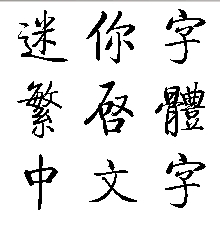 迷你字
繁啓體
中文字